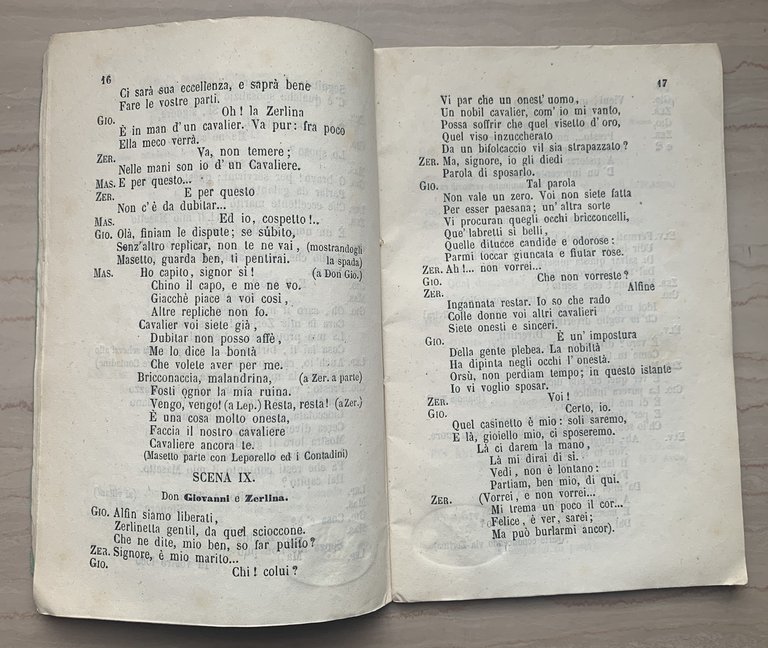 16
Ci sarà sua eccellenza, e saprà bene
Fare le vostre parti.
GIO. Oh! la Zerlina
È in man d'un cavalier. Va pur: fra poco
Ella meco verrà.
ZER. Va, non temere;
Nelle mani son io d'un Cavaliere.
MAS. E per questo...
ZER. E per questo
Non c'è da dubitar...
MAS. Ed io, cospetto!..
GIO. Olà, finiam le dispute; se sùbito,
Senz'altro replicar, non te ne vai, (mostrandogli
Masetto, guarda ben, ti pentirai. la spada)
MAS. Ho capito, signor sì! (a Don Gio.)
Chino il capo, e me ne vo.
Giacchè piace a voi così,
Altre repliche non fo.
Cavalier voi siete già,
Dubitar non posso affè,
Me lo dice la bontà
Che volete aver per me.
Bricconaccia, malandrina, (a Zer. a parte)
Fosti ognor la mia ruina.
Vengo, vengo! (a Lep.) Resta, resta! (a Zer.)
È una cosa molto onesta,
Faccia il nostro cavaliere
Cavaliere ancora te.
(Masetto parte con Leporello ed i Contadini)
SCENA IX.
Don Giovanni e Zerlina.
GIO. Alfin siamo liberati,
Zerlinetta gentil, da quel scioccone.
Che ne dite, mio ben, so far pulito?
ZER. Signore, è mio marito...
GIO. Chi! colui?
17
Vi par che un onest'uomo,
Un nobil cavalier, com'io mi vanto,
Possa soffrir che quel visetto d'oro,
Quel viso inzuccherato
Da un bifolcaccio vil sia strapazzato?
ZER. Ma, signore, io gli diedi
Parola di sposarlo.
GIO. Tal parola
Non vale un zero. Voi non siete fatta
Per esser paesana; un'altra sorte
Vi procuran quegli occhi bricconcelli,
Que' labretti sì belli,
Quelle ditucce candide e odorose:
Parmi toccar giuncata e fiutar rose.
ZER. Ah!... non vorrei...
GIO. Che non vorreste?
ZER. Alfine
Ingannata restar. Io so che rado
Colle donne voi altri cavalieri
Siete onesti e sinceri.
GIO. È un'impostura
Della gente plebea. La nobiltà
Ha dipinta negli occhi l'onestà.
Orsù, non perdiam tempo; in questo istante
Io vi voglio sposar.
ZER. Voi!
GIO. Certo, io.
Quel casinetto è mio: soli saremo,
E là, gioiello mio, ci sposeremo.
Là ci darem la mano,
Là mi dirai di sì.
Vedi, non è lontano:
Partiam, ben mio, di qui.
ZER. (Vorrei, e non vorrei...
Mi trema un poco il cor...
Felice, è ver, sarei;
Ma può burlarmi ancor).